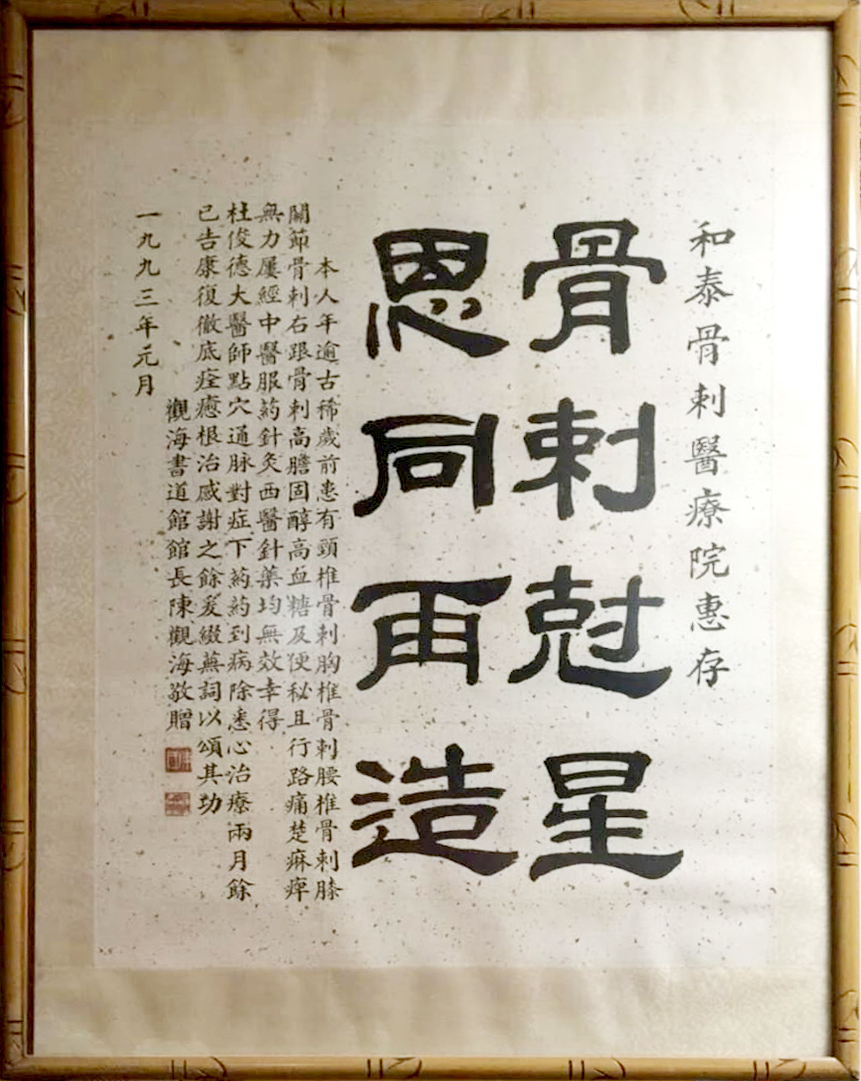 和泰骨刺醫療院惠存
骨刺尅星
恩同再造
本人年逾古稀歲前患有頸椎骨刺胸椎骨刺腰椎骨刺膝
關節骨刺右跟骨刺高膽固醇高血糖及便秘且行路痛楚麻痺
無力屢經中醫服葯針灸西醫針藥均無效幸得
杜俊德大醫師點穴通脉對症下葯葯到病除悉心治療兩月餘
已告康復徹底痊癒根治感謝之餘爰綴蕪詞以頌其功
觀海書道館館長陳觀海敬贈
一九九三年元月